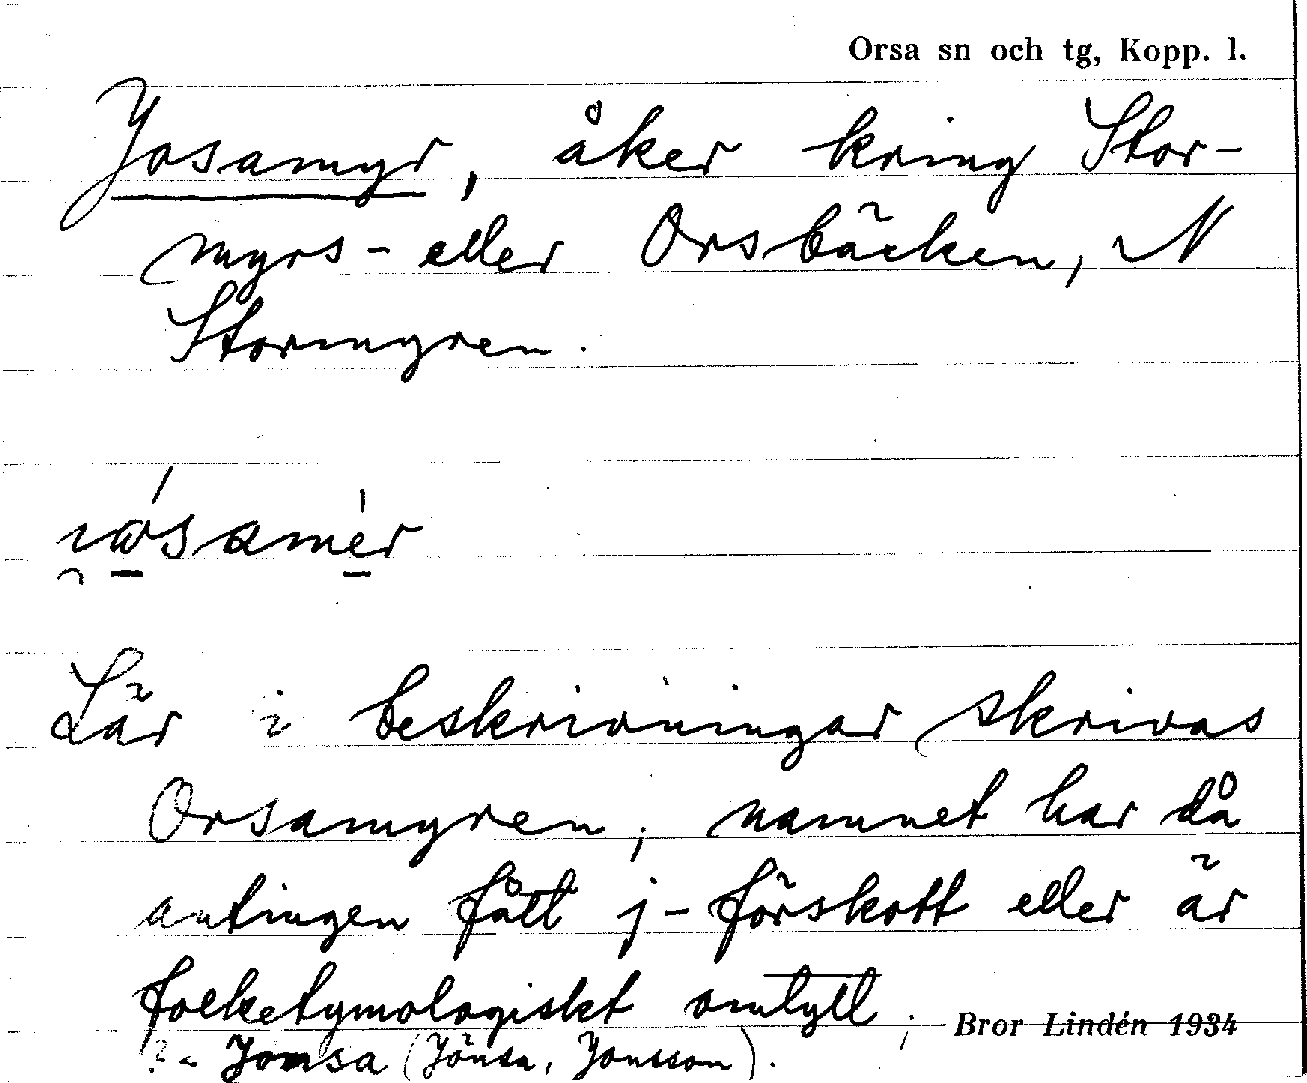 Orsa sn och tg, Kopp. l.
Josamyr, åker kring Stor-
myrs- eller Orsbäcken, N
Stormyren.
Lär i beskrivningar skrivas
Orsamyren; namnet har då
antingen fått j-förskott eller är
folketymologiskt omtytt;
Bror Lindén 1934
Jonsa (Jönsa, Jonsson).